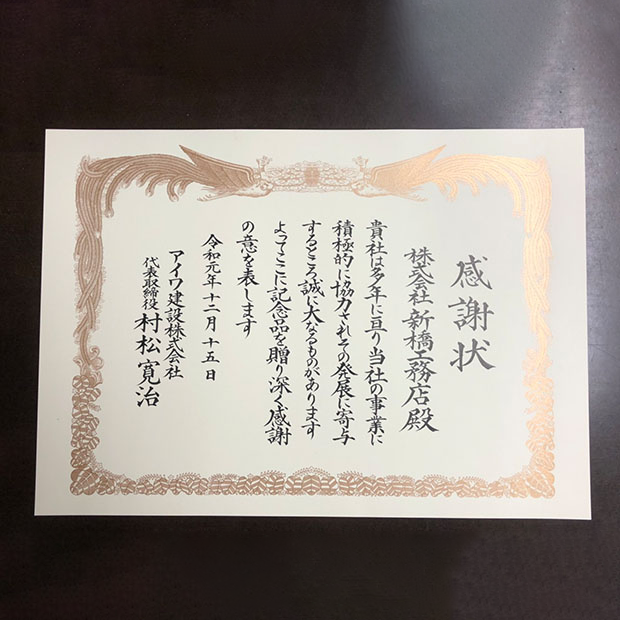 感謝状
株式会社 新橋工務店 殿
貴社は多年に亘り当社の事業に
積極的に協力されその発展に寄与
するところ誠に大なるものがあります
よってここに記念品を贈り深く感謝
の意を表します
令和元年十二月十五日
アイワ建設株式会社
代表取締役 村松寛治